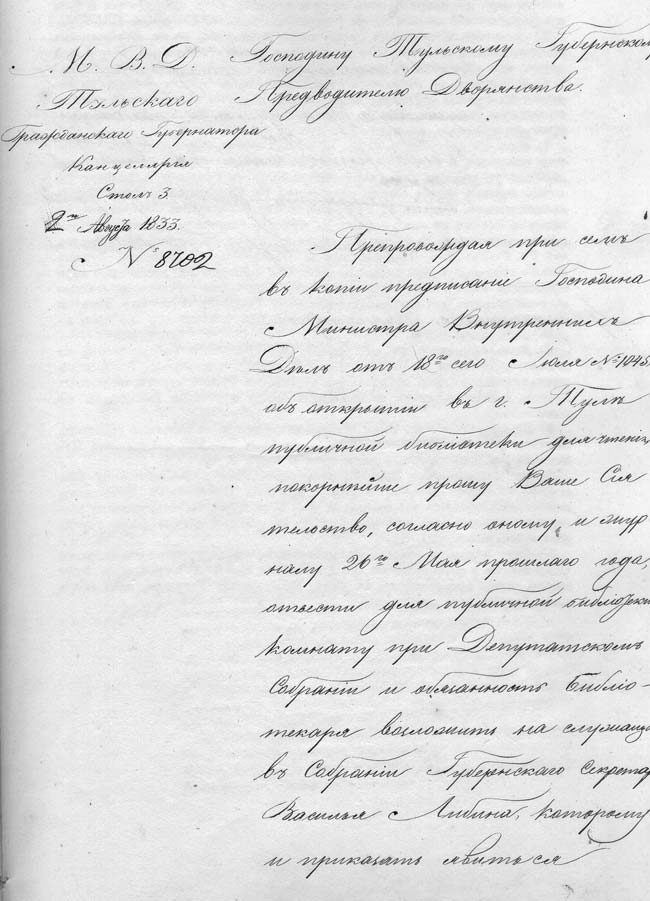 М. В. Д.
Тульскаго
Гражданскаго Губернатора
Канцелярія
Столъ 3.
2го Августа 1833.
№ 8702
Господину Тульскому Губернском
Предводителю Дворянства.
Препровождая при семъ
въ копіи предписаніе Господина
Министра Внутреннихъ
Дѣлъ отъ 18го сего Іюля № 1045.
объ открытіи въ г. Тулѣ
публичной библіотеки для чтенія,
покорнѣйше прошу Ваше Сія
тельство, согласно оному и жур
налу 26го Мая прошлаго года,
отвести для публичной библіотеки
комнату при Депутатскомъ
Собраніи и обязанность Библіо-
текаря возложить на служащ
въ Собраніи Губернскаго Секретар
Василья Либина, которому
и приказать явиться